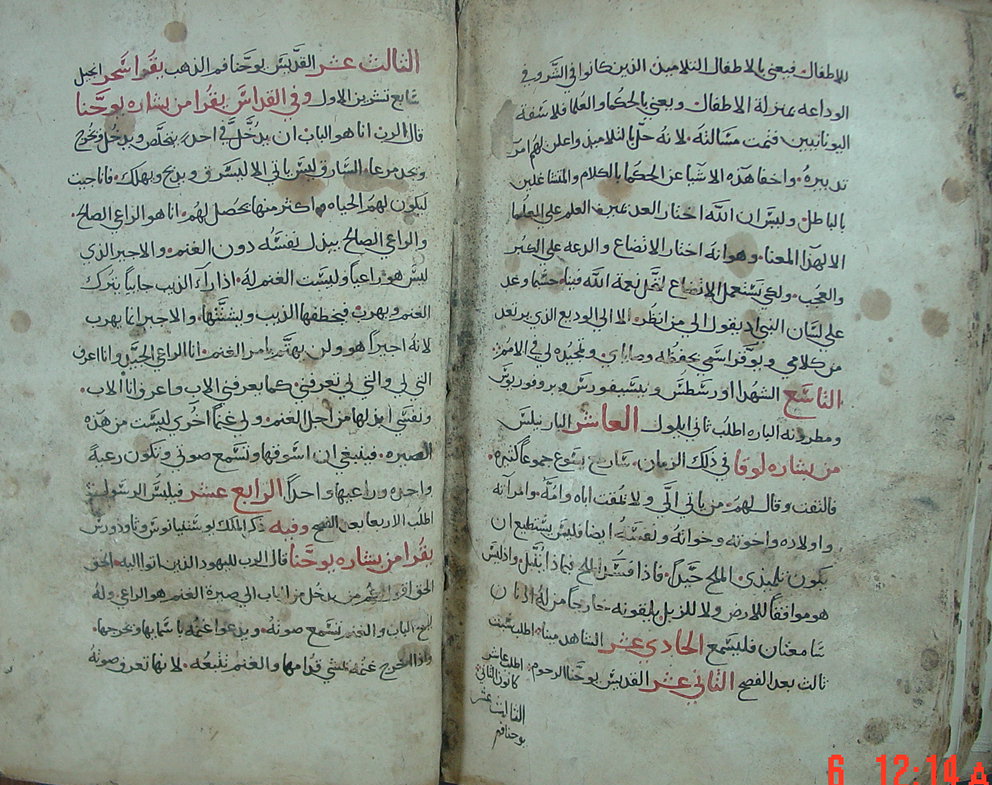 للاطفال فيعني بالاطفال التلاميذ الذين كانوا في الشرور في
الوداعه بمنزلة الاطفال ويعني بالحكما والعلما فلاسفة
اليونانيين فتمت مسالته لانه حل بالتلاميذ واعلن لهم امر
تدبيره واخفا هذه الاشيا عن الحكما بالكلام والمتشاغلين
بالباطل وليس ان الله اختار العديمين العلم على العلما
الا لهذا المعنا وهو انه اختار الاتضاع والدعه على الكبر
والعجب ولكي نستعمل الاتضاع لتحل نعمة الله فينا حسبما وعد
على لسان النبي اذ يقول الي من انظر الا الى الوديع الذي يرتعد
من كلامي ويوقر اسمي بحفظه وصاياي وتمجيده لي في الامم
التاسع الشهدا اورسطس وبسيفورس وبروفوريوس
ومطرونه الباره اطلب ثاني ايلول العاشر البار نيلس
من بشاره لوقا في ذلك الزمان سار مع يسوع جموعا كثيره
فالتفت وقال لهم من ياتي الي ولا يمقت اباه وامه وامراته
واولاده واخوته وخواته ونفسه ايضا فليس يستطيع ان
يكون تلميذي الملح جيدا فاذا فسد الملح فبماذا يتبل واذ ليس
هو موافقا للارض ولا للزبل يلقونه خارجا من له اذنان
سامعتان فليسمع الحادي عشر الشاهد مينا اطلب سبت
ثالث بعد الفصح الثاني عشر القديس يوحنا الرحوم
اطلب عاشر
كانون الثاني
الثالث عشر
يوحنا فم
الثالث عشر القديس يوحنا فم الذهب يقوا سحر انجيل
سابع تشرين الاول وفي القداس يقرا من بشاره يوحنا
قال الرب انا هو الباب ان يدخل في احد يتخلص ويدخل ويخرج
ويجد مرعا السارق ليس ياتي الا ليسرق ويدبح ويهلك فانا جيت
ليكون لهم الحياه واكثر منها يحصل لهم انا هو الراعي الصالح
والراعي الصالح يبذل نفسه دون الغنم والاجير الذي
ليس هو راعيا وليست الغنم له اذا راى الذيب جاييا يترك
الغنم ويهرب فيخطفها الذيب ويشتتها والاجير انما يهرب
لانه اجيرا هو ولن يهتم بامر الغنم انا الراعي الجيد وانا اعرف
التي لي والتي لي تعرفني كما يعرفني الاب واعرف انا الاب
ونفسي ابذلها من اجل الغنم ولي غنما اخرى ليست من هذه
الصيره فينبغي ان اسوقها وتسمع صوتي وتكون رعية
واحده وراعيها واحدا الرابع عشر فيلبس الرسول
اطلب الاربعا بعد الفصح وفيه ذكر الملك يوستنيانوس وثاودورس
يقوا من بشاره يوحنا قال الرب لليهود الذين اتوا اليه الحق
الحق اقول لكم من يدخل من الباب الى صيرة الغنم هو الراعي وله
يفتح الباب والغنم تسمع صوته ويدعوا غنمه باسمايها ويخرجها
واذا اخرج غنمه يمشي قدامها والغنم تتبعه لانها تعرف صوته